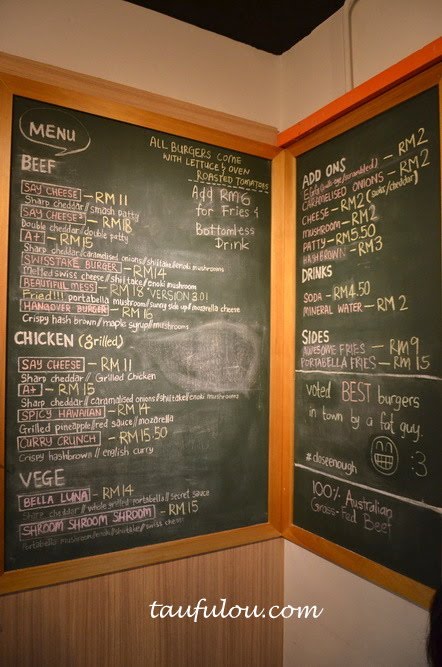 MENU
ALL BURGERS COME
WITH LETTUCE & OVEN
ROASTED TOMATOES
Add RM6
for Fries &
Bottomless
Drink
BEEF
SAY CHEESE - RM 11
Sharp cheddar/smash patty
SAY CHEESE² - RM18
Double cheddar/double patty
A+ - RM15
Sharp cheddar/caramelised onions/shiitake/enoki mushrooms
SWISSTAKE BURGER - RM14
Melted swiss cheese/shiitake/enoki mushroom
BEAUTIFUL MESS - RM 18 VERSION 3.0!
Fried!!! portabella mushroom/sunny side up/mozarella cheese
HANGOVER BURGER - RM 16
Crispy hash brown/maple syrup/mushrooms
CHICKEN (grilled)
SAY CHEESE - RM 11
Sharp cheddar/Grilled Chicken
A+ - RM 15
Sharp cheddar/caramalised onions/shiitake/enoki mushrooms
SPICY HAWAIIAN - RM 14
Grilled pineapple/red sauce/mozarella
CURRY CRUNCH - RM 15.50
Crispy hashbrown//english curry
VEGE
BELLA LUNA - RM14
Share cheddar/whole grilled portabella/secret sauce
SHROOM SHROOM SHROOM - RM15
Portabella mushroom/enoki/shiitake/swiss cheese
ADD ONS
(scrambled) - RM2
CARAMELISED ONIONS - RM 2
CHEESE - RM2 (swiss/cheddar)
MUSHROOM - RM2
PATTY - RM5.50
HASHBROWN - RM3
DRINKS
SODA - RM4.50
MINERAL WATER - RM 2
SIDES
AWESOME FRIES - RM9
PORTABELLA FRIES - RM 15
voted BEST burgers
in town by a fat guy.
#closeenough
:3
100% Australian
Grass-Fed Beef
taufulou.com